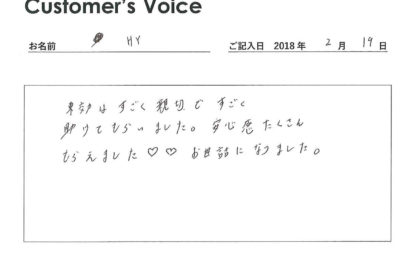 Customer's Voice
お名前 HY ご記入日 2018 年 2 月 19 日
はすごく親切ですごく
助けてもらいました。安心感たくさん
もらえました♡♡ お世話になりました。